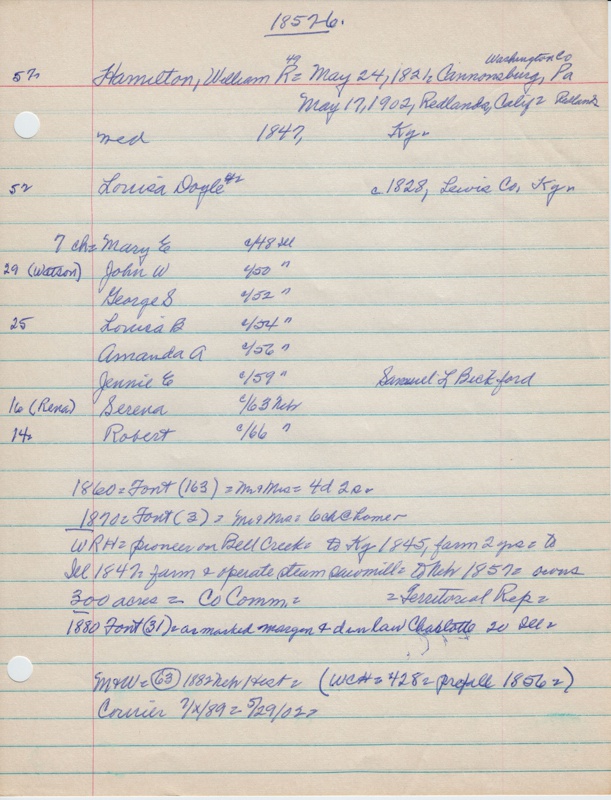 1857-6.
Washington Co
57 Hamilton, William R = May 24, 1821, Cannonsburg, Pa
May 17, 1902, Redlands, Calif =
med 1847, Ky =
52 Louisa Doyle #2 c 1828, Lewis Co, Ky =
7 ch = Mary E c/48 Ill
29 (Watson) John W c/50 "
George S c/52 "
25 Louisa B c/54 "
Amanda A c/56 "
Jennie E c/59 " Samuel L Beckford
16 (Rena) Serena c/63 Neb
14 Robert c/66 "
1860 = Font (163) = Mr & Mrs = 4d 2s =
1870 = Font (3) = Mr & Mrs = 6 ch @ home =
WRH = pioneer on Bell Creek = to Ky 1845, farm 2 yrs = to
Ill 1847 = farm & operate steam sawmill = to Neb 1857 = owns
300 acres = Co Comm. = = Territorial Rep =
1880 Font (31) = as marked margin & d in law Charlotte 20 Ill =
M&W = (63) 1882 Neb Hist = (WCH = 428 = profile 1856 =)
Courier 7/X/89 = 5/29/02 =